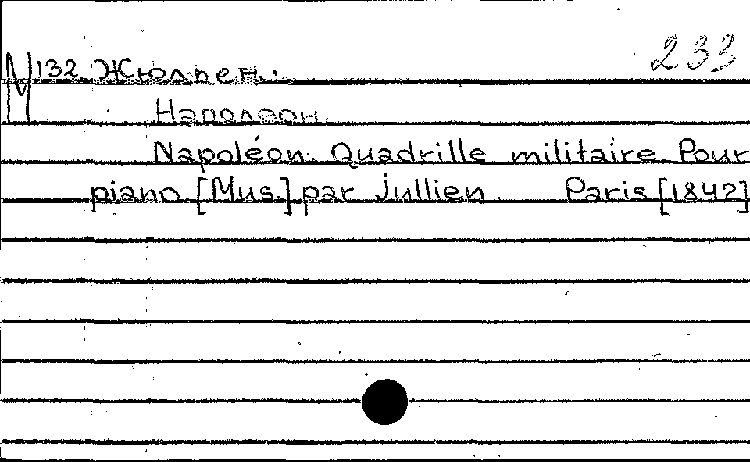 233
M 132 Жюльен.
Наполеон.
Napoléon. Quadrille militaire. Pour
piano [Mus.] par Jullien. Paris [1842]